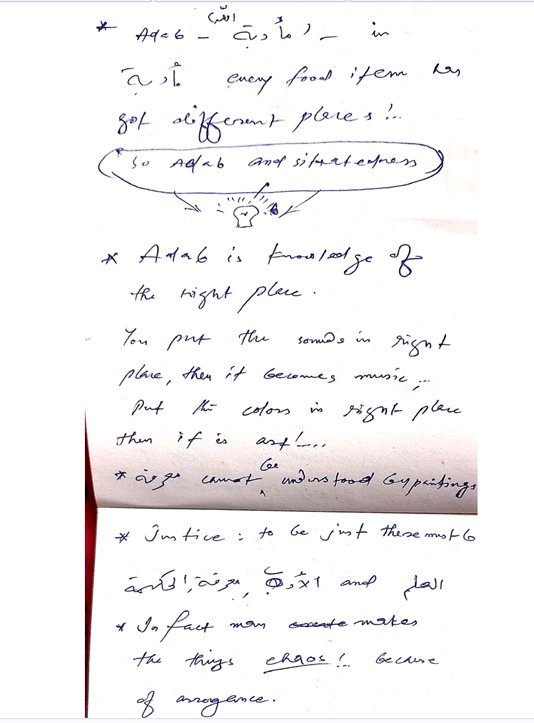 (الله)
* Adab - (مأدبة) - in
مأدبة every food item has
got different places!..
so Adab and situatedness
* Adab is knowledge of
the right place.
You put the sounds in right
place, then it becomes music,..
Put the colors in right place
then it is art!....
be
* معرفة cannot ^ understood by paintings
* Justice: to be just there must b
العلم and الأدب, معرفة, الحكمة
* In fact man create makes
the things chaos! because
of arrogance.